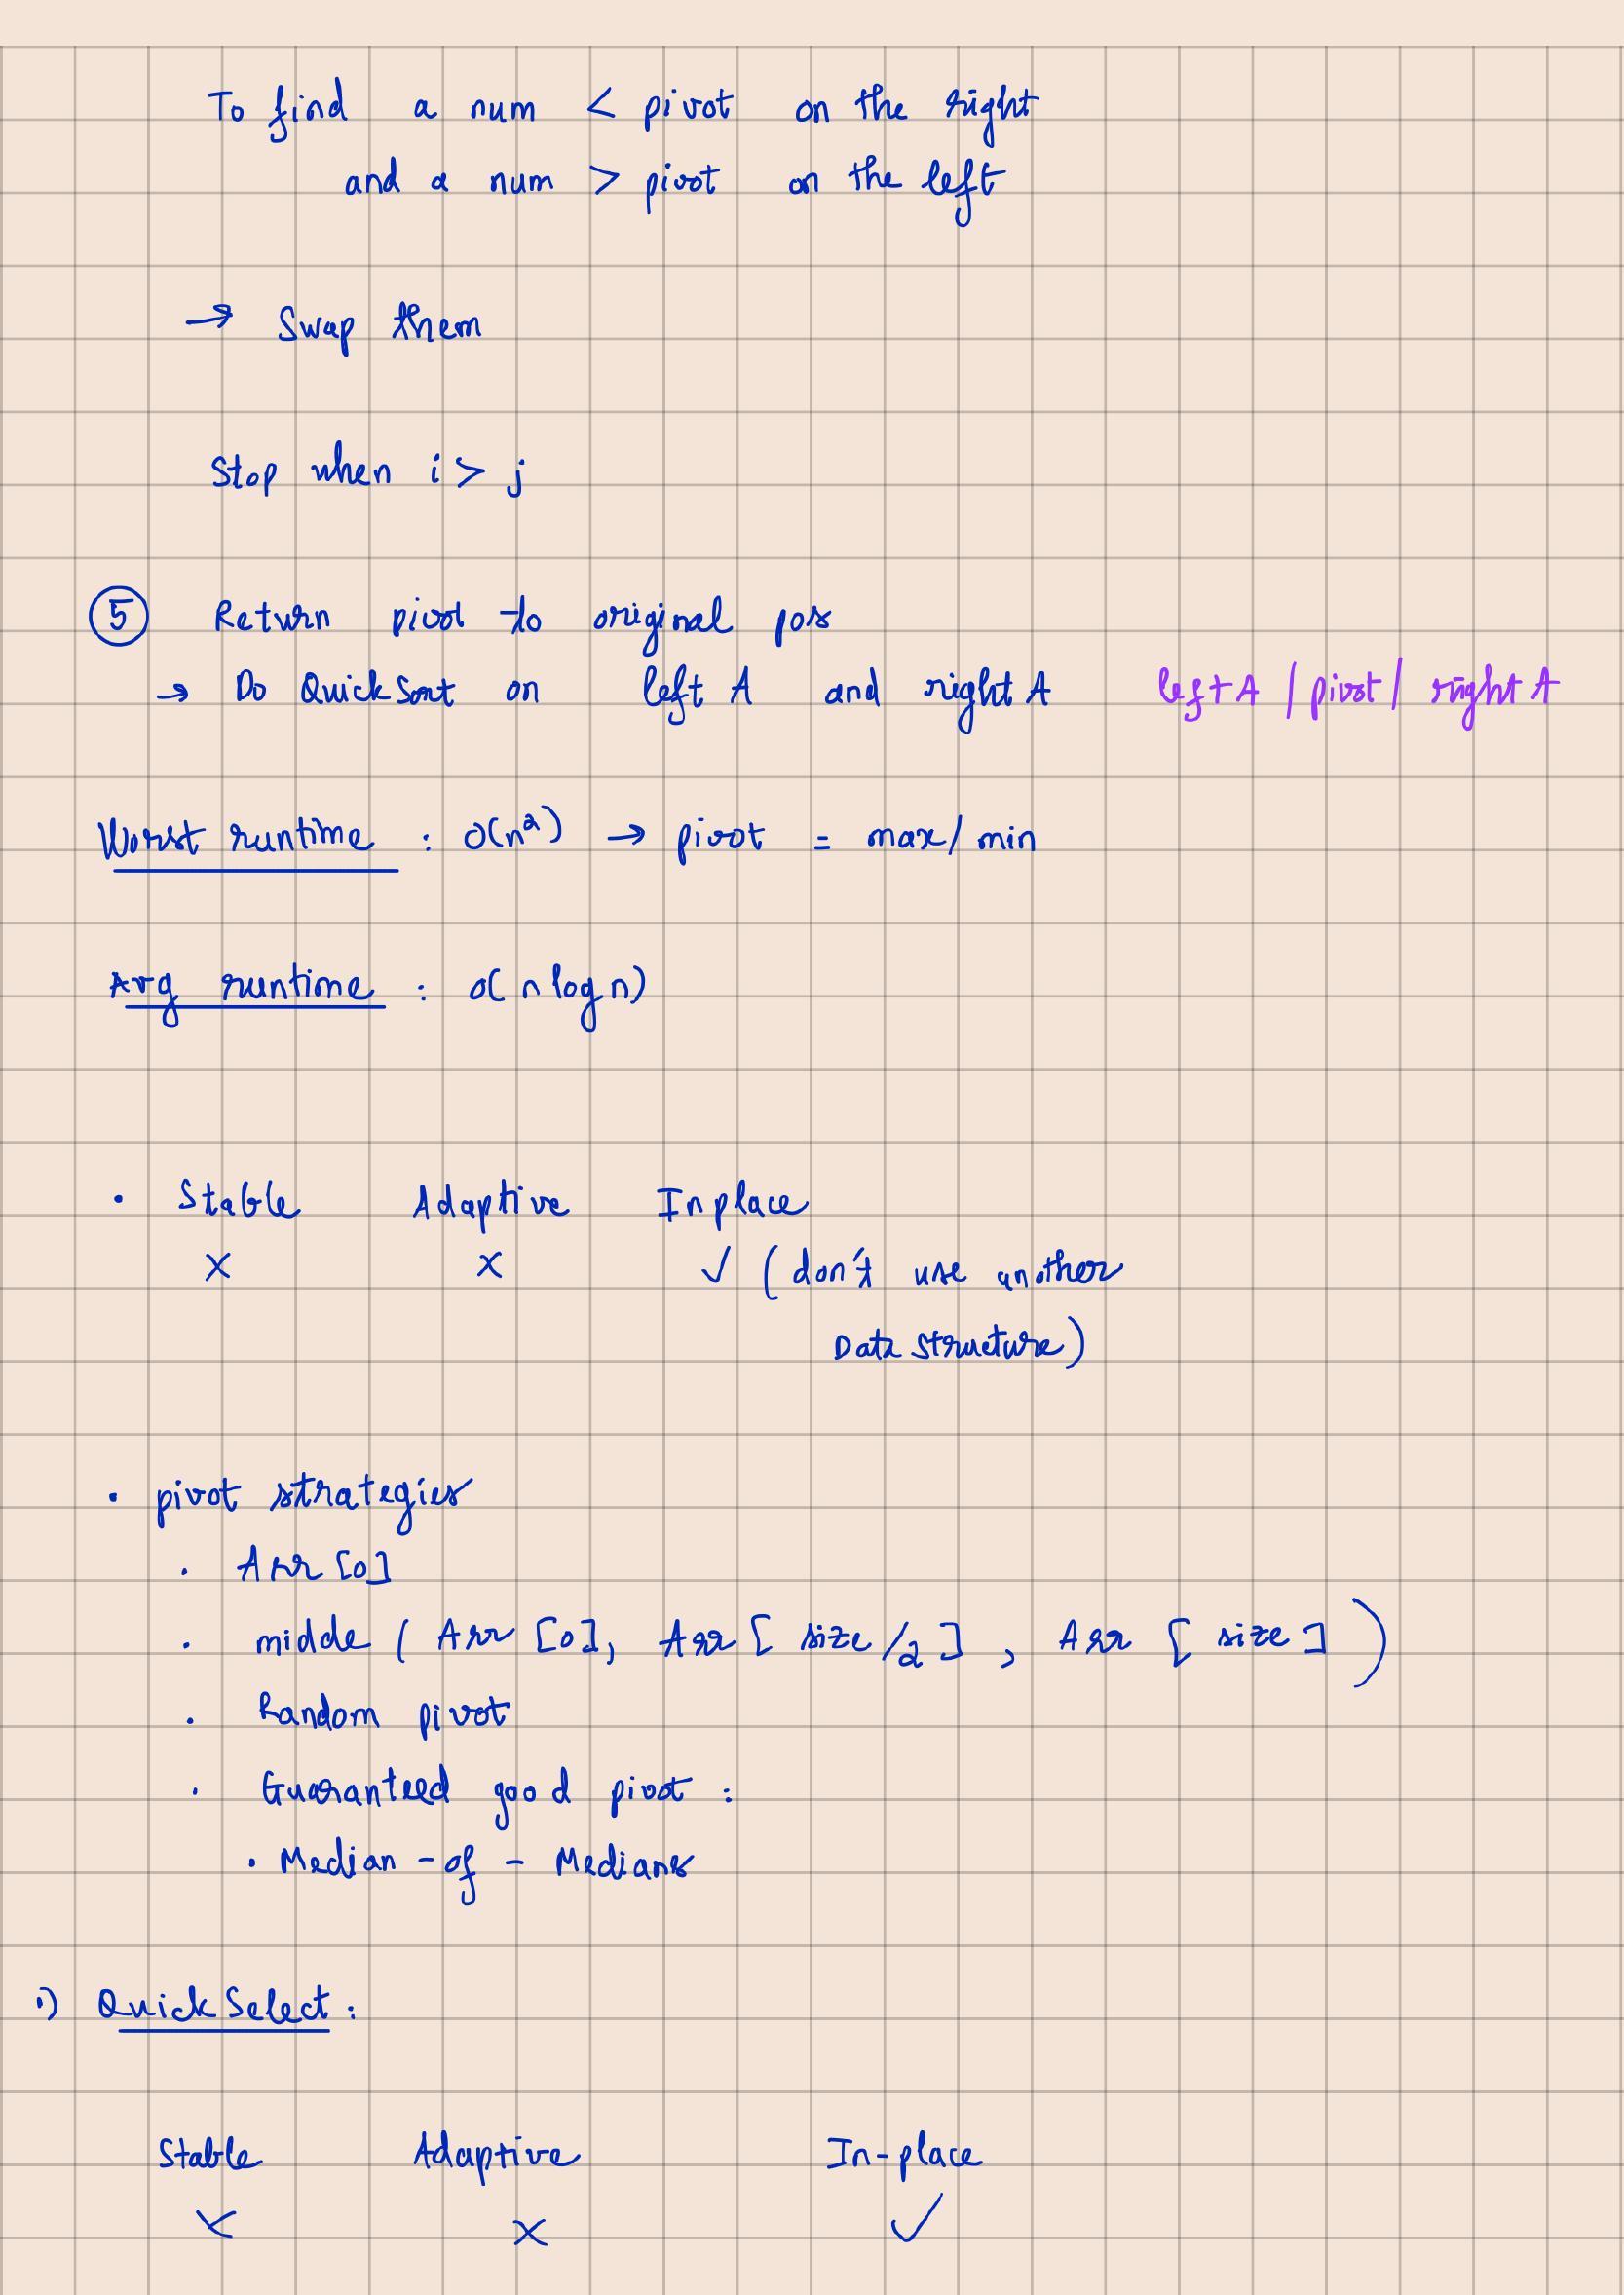 To find a num < pivot on the right
and a num > pivot on the left
→ Swap them
Stop when i > j
⑤ Return pivot to original pos
→ Do QuickSort on left A and right A left A / pivot / right A
Worst runtime : O(n²) → pivot = max/min
Avg runtime : O(n log n)
• Stable Adaptive In place
X X ✓ (don't use another
Data Structure)
• pivot strategies
• Arr [0]
• midde ( Arr [0], Arr [ size/2 ] , Arr [ size ] )
• Random pivot
• Guaranteed good pivot :
• Median - of - Medians
•) QuickSelect :
Stable Adaptive In-place
X X ✓